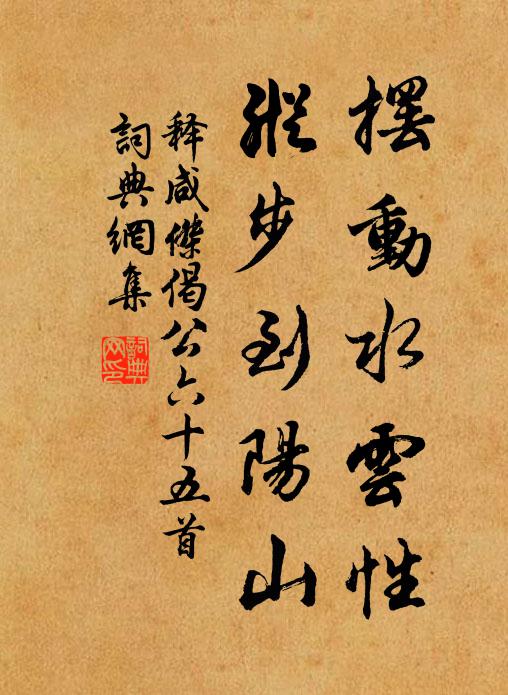 擺動水雲性
縱步到陽山
释咸傑偈公六十五首
詞典網集
詞典網印